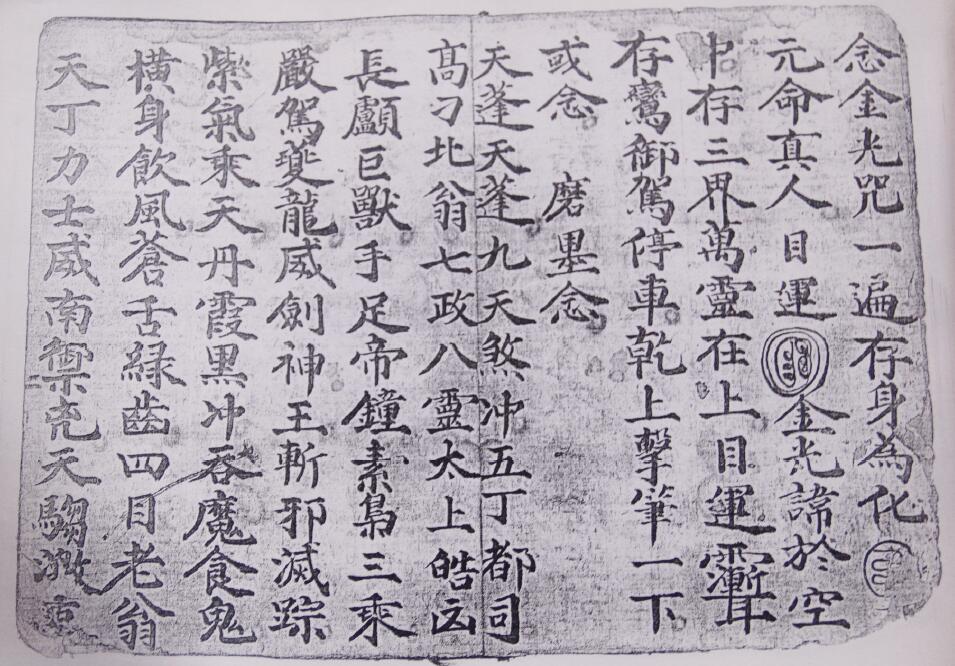 念金光咒一遍存身為化
元命真人目運金光諦於空
中存三界萬靈在上目運
存鸞御駕停車乾上擊筆一下
或念 磨墨念
天蓬天蓬九天煞冲五丁都司
髙刁北翁七政八靈太上皓
長顱巨獸手足帝鐘素梟三乘
嚴駕夔龍威劍神王斬邪滅踪
紫氣乘天丹霞黑冲吞魔食鬼
橫身飲風蒼舌緑齒四目老翁
天丁力士威南禦兇天騶激